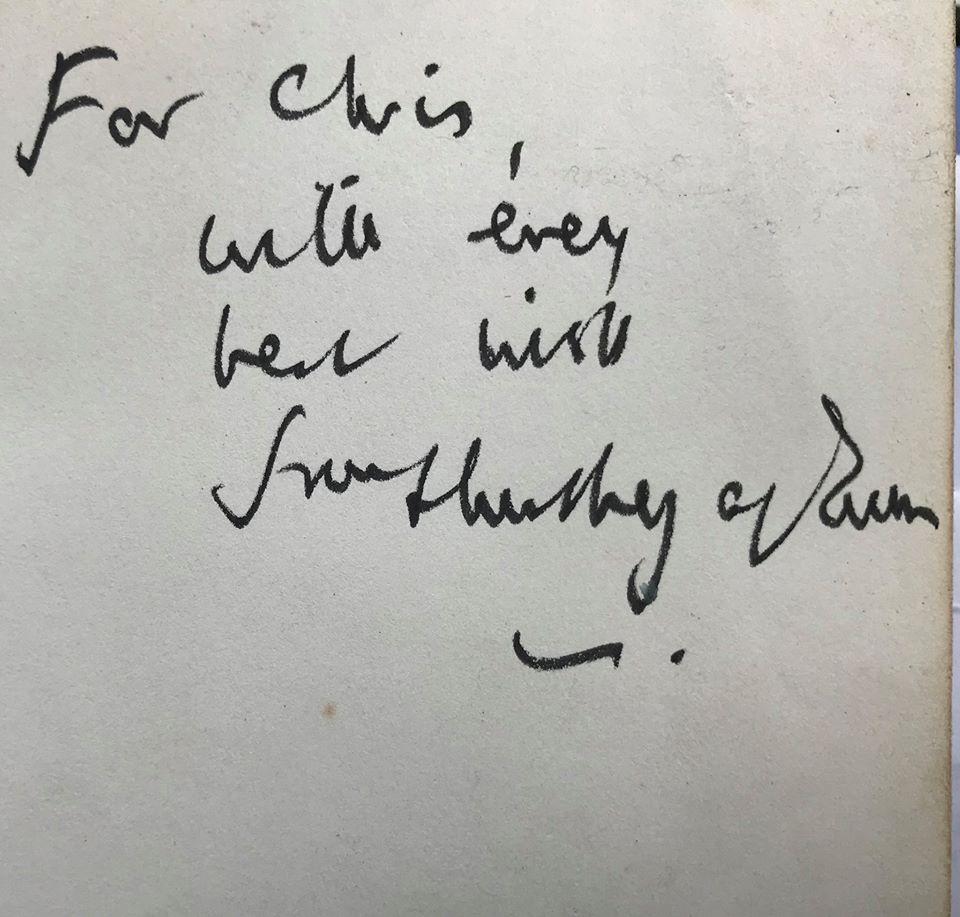 For Chris,
with every
best wish
from of